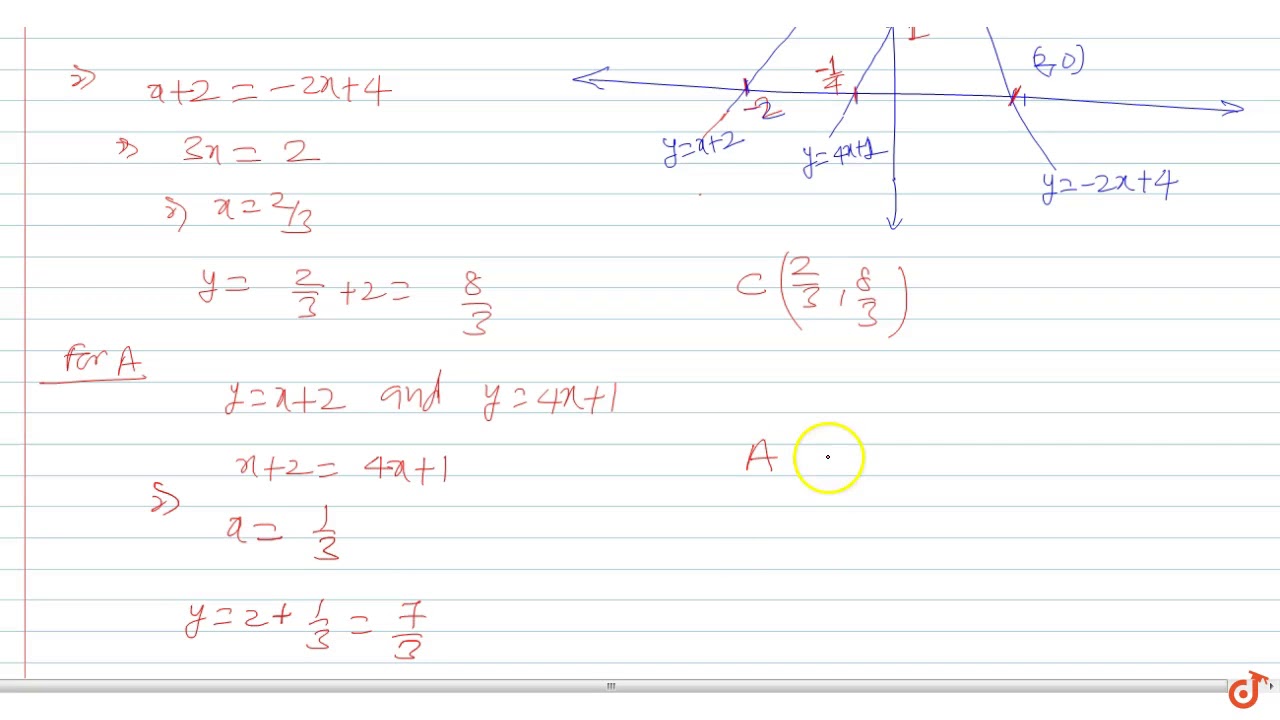 ⇒ x+2 = -2x+4
⇒ 3x = 2
⇒ x = 2/3
y = 2/3 + 2 = 8/3
For A
y = x+2 and y = 4x+1
x+2 = 4x+1
⇒ x = 1/3
y = 2 + 1/3 = 7/3
1
(2,0)
-1/4
-2
y=x+2
y=4x+1
y=-2x+4
C (2/3, 8/3)
A